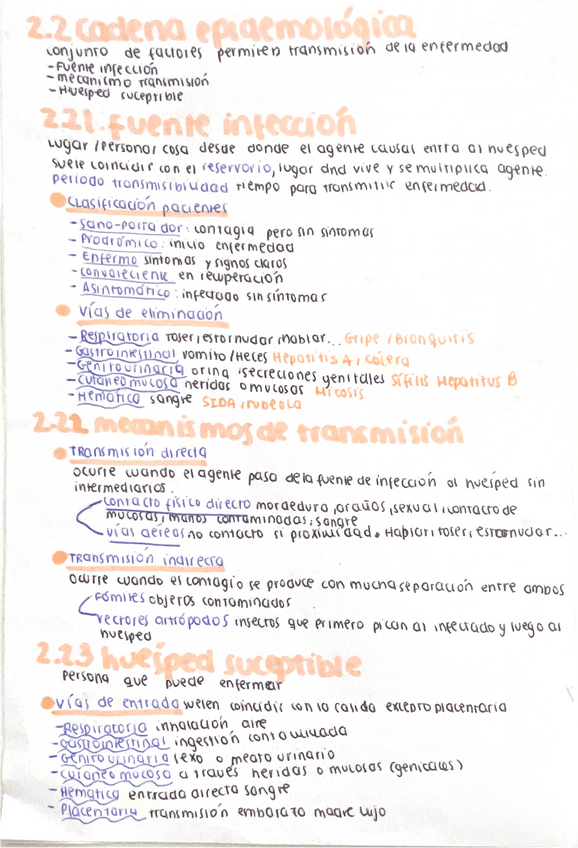 2.2 cadena epidemológica
conjunto de factores permiten transmisión de la enfermedad
- Fuente infección
- mecanismo transmisión
- Huesped suceptible
2.2.1. fuente infección
lugar / persona / cosa desde donde el agente causal entra al huesped
suele coincidir con el reservorio, lugar dnd vive y se multiplica agente.
periodo transmisibilidad tiempo para transmitir enfermedad.
Clasificación pacientes
- Sano-portador: contagia pero sin sintomas
- Prodrómico: inicio enfermedad
- Enfermo sintomas y signos claros
- convaleciente en recuperación
- Asintomático: infectado sin síntomas
vías de eliminación
- Respiratoria toser, estornudar, hablar... Gripe / Bronquitis
- Gastrointestinal vomito / Heces Hepatitis A, cólera
- Genitourinaria orina, secreciones genitales Sífilis Hepatitus B
- Cutaneo mucosa heridas o mucosas Micosis
- Hemática sangre SIDA, rubeola
2.2.2 mecanismos de transmisión
Transmisión directa
ocurre cuando el agente pasa de la fuente de infección al huésped sin
intermediarios.
contacto físico directo mordedura, arañas, sexual, contacto de
mucosas, manos contaminadas, sangre
vías aéreas no contacto si proximidad. Hablar, toser, estornudar...
Transmisión indirecta
ocurre cuando el contagio se produce con mucha separación entre ambos
Fómites objetos contaminados
vectores artrópodos insectos que primero pican al infectado y luego al
huesped
2.2.3 huésped suceptible
persona que puede enfermar
vías de entrada suelen coincidir con la salida excepto placentaria
- Respiratoria inhalación aire
- Gastrointestinal ingestión contaminada
- Genitourinaria sexo o meato urinario
- cutaneo mucosa a través heridas o mucosas (genitales)
- Hemática entrada directa sangre
- Placentaria transmisión embarazo madre hijo